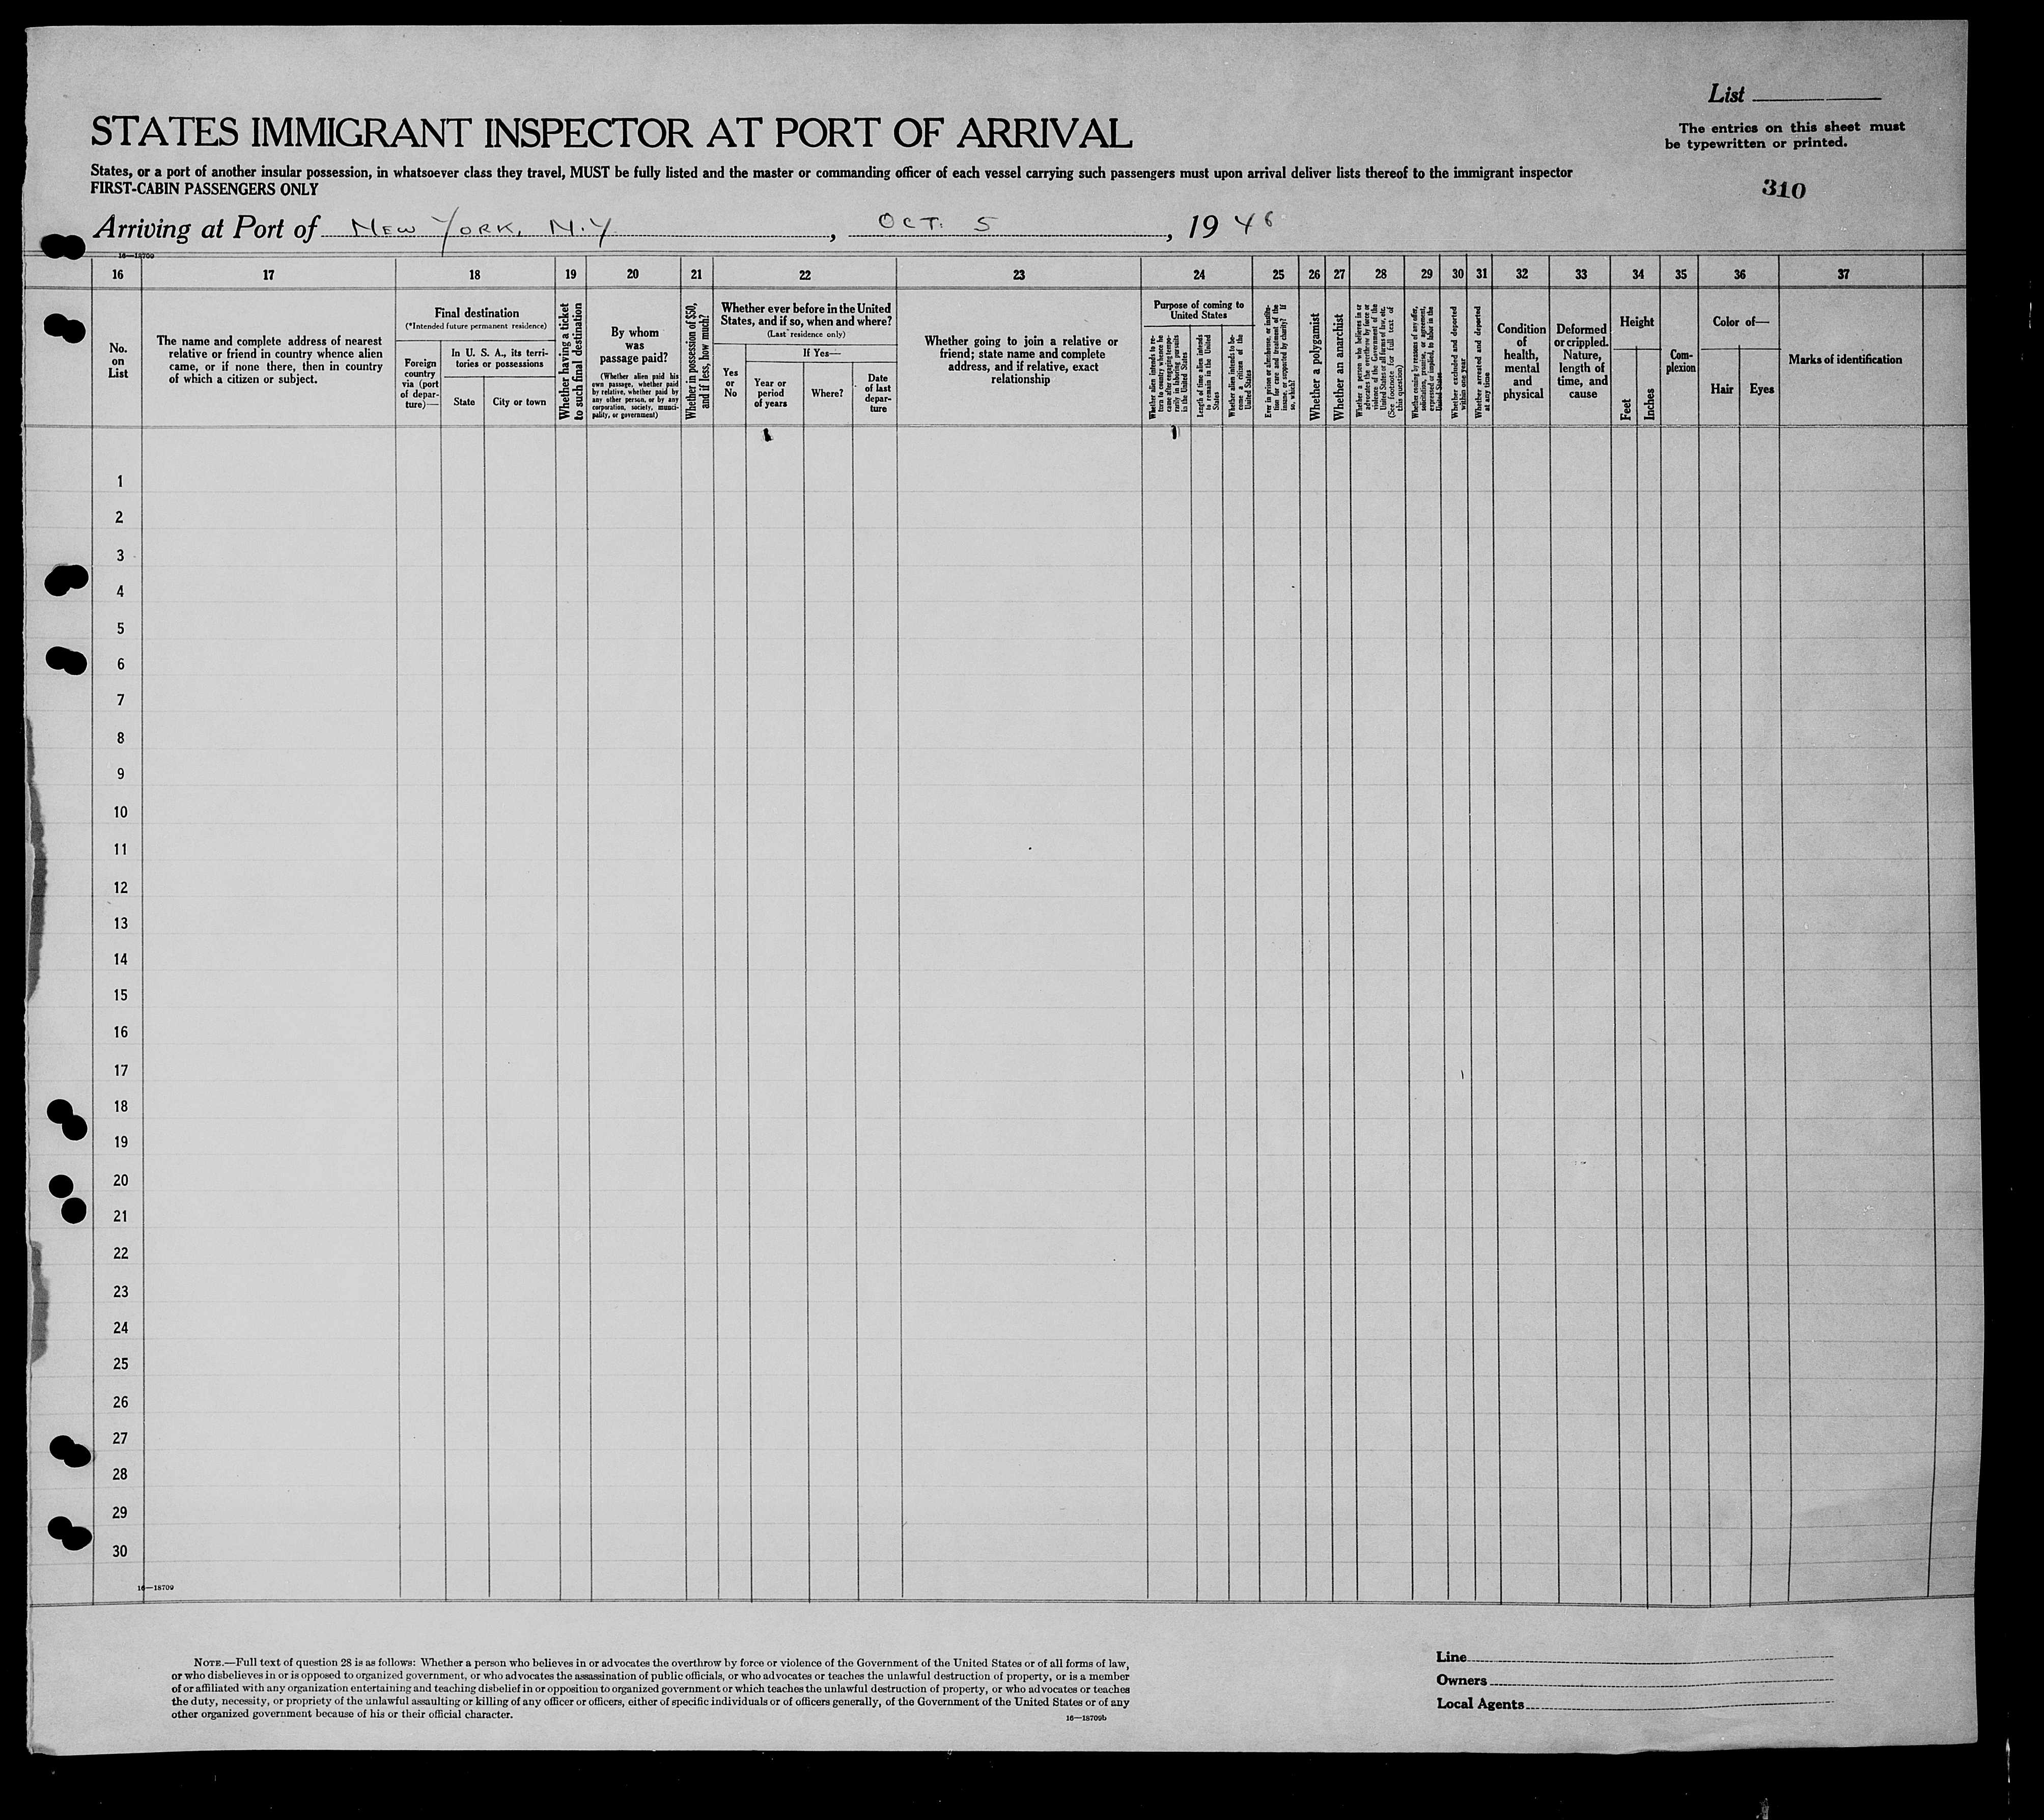 List
STATES IMMIGRANT INSPECTOR AT PORT OF ARRIVAL
The entries on this sheet must
be typewritten or printed.
States, or a port of another insular possession, in whatsoever class they travel, MUST be fully listed and the master or commanding officer of each vessel carrying such passengers must upon arrival deliver lists thereof to the immigrant inspector
FIRST-CABIN PASSENGERS ONLY
310
Arriving at Port of NEW YORK, N.Y , OCT. 5 , 19 46
16—18709
16 17 18 19 20 21 22 23 24 25 26 27 28 29 30 31 32 33 34 35 36 37
No.
on
List
The name and complete address of nearest
relative or friend in country whence alien
came, or if none there, then in country
of which a citizen or subject.
Final destination
(*Intended future permanent residence)
Foreign
country
via (port
of depar-
ture)—
In U. S. A., its terri-
tories or possessions
State
City or town
Whether having a ticket
to such final destination
By whom
was
passage paid?
(Whether alien paid his
own passage, whether paid
by relative, whether paid by
any other person, or by any
corporation, society, munici-
pality, or government)
Whether in possession of $50,
and if less, how much?
Whether ever before in the United
States, and if so, when and where?
(Last residence only)
Yes
or
No
If Yes—
Year or
period
of years
Where?
Date
of last
depar-
ture
Whether going to join a relative or
friend; state name and complete
address, and if relative, exact
relationship
Purpose of coming to
United States
Whether alien intends to re-
turn to country whence he
came after engaging tempo-
rarily in laboring pursuits
in the United States
Length of time alien intends
to remain in the United
States
Whether alien intends to be-
come a citizen of the
United States
Ever in prison or almshouse, or institu-
tion for care and treatment of the
insane, or supported by charity? If
so, which?
Whether a polygamist
Whether an anarchist
Whether a person who believes in or
advocates the overthrow by force or
violence of the Government of the
United States or all forms of law, etc.
(See footnote for full text of
this question)
Whether coming by reasons of any offer,
solicitation, promise, or agreement,
expressed or implied, to labor in the
United States
Whether excluded and deported
within one year
Whether arrested and deported
at any time
Condition
of
health,
mental
and
physical
Deformed
or crippled.
Nature,
length of
time, and
cause
Height
Feet
Inches
Com-
plexion
Color of—
Hair
Eyes
Marks of identification
1
2
3
4
5
6
7
8
9
10
11
12
13
14
15
16
17
18
19
20
21
22
23
24
25
26
27
28
29
30
16—18709
NOTE.—Full text of question 28 is as follows: Whether a person who believes in or advocates the overthrow by force or violence of the Government of the United States or of all forms of law,
or who disbelieves in or is opposed to organized government, or who advocates the assassination of public officials, or who advocates or teaches the unlawful destruction of property, or is a member
of or affiliated with any organization entertaining and teaching disbelief in or opposition to organized government or which teaches the unlawful destruction of property, or who advocates or teaches
the duty, necessity, or propriety of the unlawful assaulting or killing of any officer or officers, either of specific individuals or of officers generally, of the Government of the United States or of any
other organized government because of his or their official character.
16—18709b
Line
Owners
Local Agents